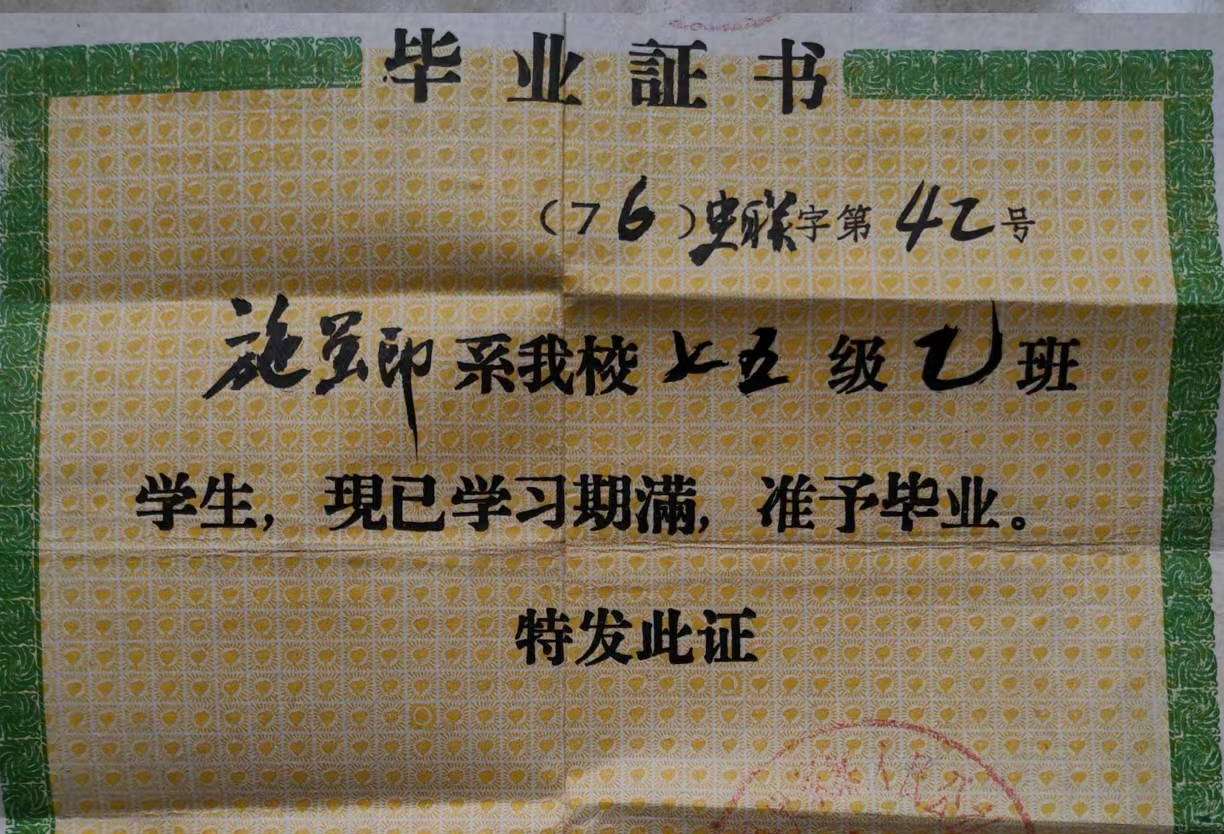 毕业証书
(76)联字第42号
施呈卿系我校七五级乙班
学生，現已学习期滿，准予毕业。
特发此证